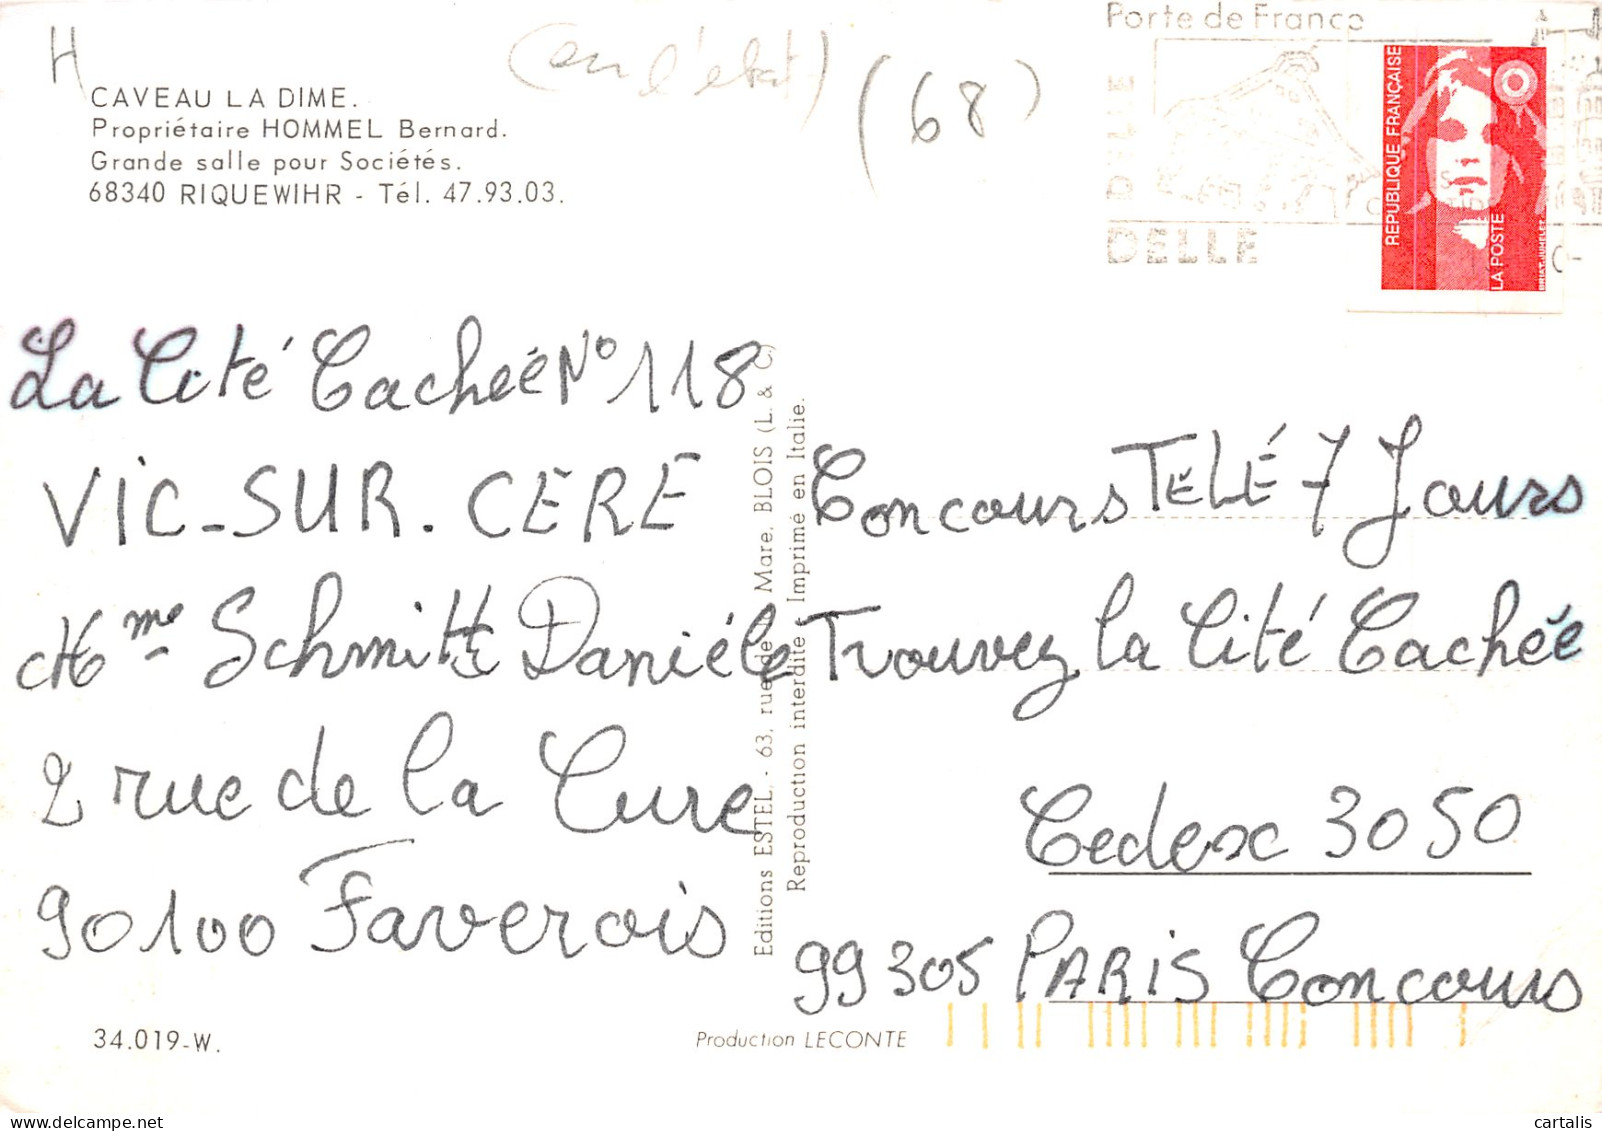 H
(en l'état)
(68)
CAVEAU LA DIME.
Propriétaire HOMMEL Bernard.
Grande salle pour Sociétés.
68340 RIQUEWIHR - Tél. 47.93.03.
Porte de France
DELLE
DELLE
REPUBLIQUE FRANÇAISE
LA POSTE
La Cité Cachée N° 118
VIC-SUR-CERE
Mme Schmitt Danièle
2 rue de la Cure
90100 Faverois
Editions ESTEL, - 63, rue de Mare, BLOIS (L. & C)
Reproduction interdite Imprimé en Italie.
Concours TELÉ 7 Jours
Trouvez la Cité Cachée
Cedex 3050
99305 PARIS Concours
34.019-W.
Production LECONTE
cartalis
delcampe.net